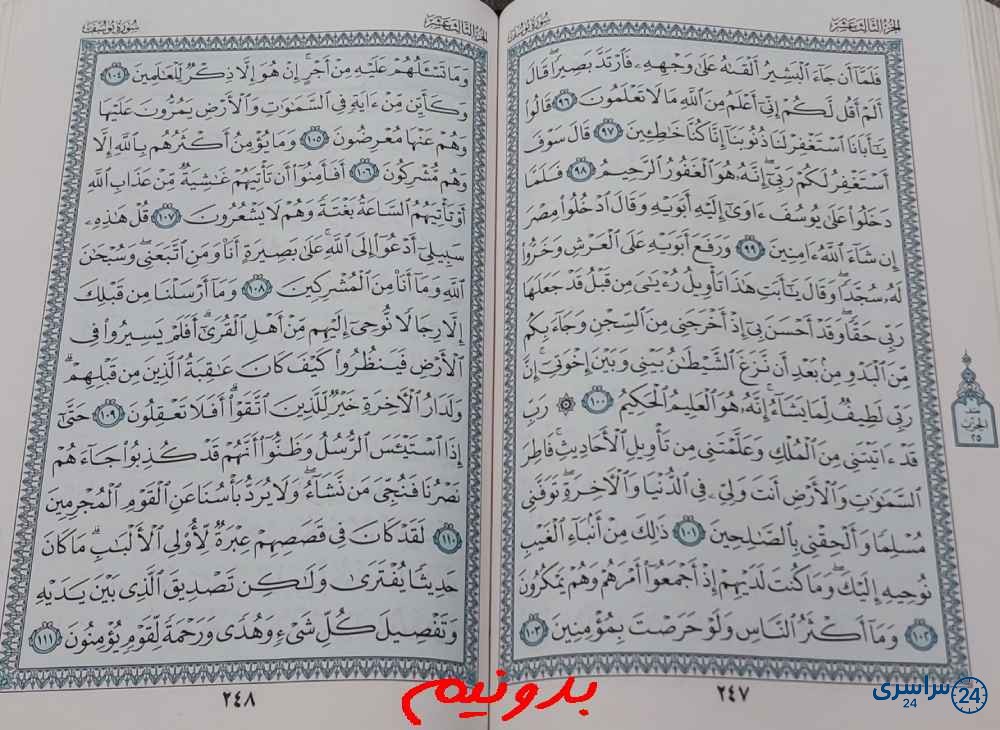 الجزء الثالث عشر
سورة يوسف
فَلَمَّآ أَن جَآءَ ٱلْبَشِيرُ أَلْقَىٰهُ عَلَىٰ وَجْهِهِۦ فَٱرْتَدَّ بَصِيرًا ۖ قَالَ
أَلَمْ أَقُل لَّكُمْ إِنِّىٓ أَعْلَمُ مِنَ ٱللَّهِ مَا لَا تَعْلَمُونَ ٩٦ قَالُوا۟
يَـٰٓأَبَانَا ٱسْتَغْفِرْ لَنَا ذُنُوبَنَآ إِنَّا كُنَّا خَـٰطِـِٔينَ ٩٧ قَالَ سَوْفَ
أَسْتَغْفِرُ لَكُمْ رَبِّىٓ ۖ إِنَّهُۥ هُوَ ٱلْغَفُورُ ٱلرَّحِيمُ ٩٨ فَلَمَّا
دَخَلُوا۟ عَلَىٰ يُوسُفَ ءَاوَىٰٓ إِلَيْهِ أَبَوَيْهِ وَقَالَ ٱدْخُلُوا۟ مِصْرَ
إِن شَآءَ ٱللَّهُ ءَامِنِينَ ٩٩ وَرَفَعَ أَبَوَيْهِ عَلَى ٱلْعَرْشِ وَخَرُّوا۟
لَهُۥ سُجَّدًا ۖ وَقَالَ يَـٰٓأَبَتِ هَـٰذَا تَأْوِيلُ رُءْيَـٰىَ مِن قَبْلُ قَدْ جَعَلَهَا
رَبِّى حَقًّا ۖ وَقَدْ أَحْسَنَ بِىٓ إِذْ أَخْرَجَنِى مِنَ ٱلسِّجْنِ وَجَآءَ بِكُم
مِّنَ ٱلْبَدْوِ مِنۢ بَعْدِ أَن نَّزَغَ ٱلشَّيْطَـٰنُ بَيْنِى وَبَيْنَ إِخْوَتِىٓ ۚ إِنَّ
رَبِّى لَطِيفٌ لِّمَا يَشَآءُ ۚ إِنَّهُۥ هُوَ ٱلْعَلِيمُ ٱلْحَكِيمُ ١٠٠ ۞ رَبِّ
قَدْ ءَاتَيْتَنِى مِنَ ٱلْمُلْكِ وَعَلَّمْتَنِى مِن تَأْوِيلِ ٱلْأَحَادِيثِ ۚ فَاطِرَ
ٱلسَّمَـٰوَٰتِ وَٱلْأَرْضِ أَنتَ وَلِىِّۦ فِى ٱلدُّنْيَا وَٱلْـَٔاخِرَةِ ۖ تَوَفَّنِى
مُسْلِمًا وَأَلْحِقْنِى بِٱلصَّـٰلِحِينَ ١٠١ ذَٰلِكَ مِنْ أَنۢبَآءِ ٱلْغَيْبِ
نُوحِيهِ إِلَيْكَ ۖ وَمَا كُنتَ لَدَيْهِمْ إِذْ أَجْمَعُوٓا۟ أَمْرَهُمْ وَهُمْ يَمْكُرُونَ
١٠٢ وَمَآ أَكْثَرُ ٱلنَّاسِ وَلَوْ حَرَصْتَ بِمُؤْمِنِينَ ١٠٣
نصف
الحزب
٢٥
٢٤٧
الجزء الثالث عشر
سورة يوسف
وَمَا تَسْـَٔلُهُمْ عَلَيْهِ مِنْ أَجْرٍ ۚ إِنْ هُوَ إِلَّا ذِكْرٌ لِّلْعَـٰلَمِينَ ١٠٤
وَكَأَيِّن مِّنْ ءَايَةٍ فِى ٱلسَّمَـٰوَٰتِ وَٱلْأَرْضِ يَمُرُّونَ عَلَيْهَا
وَهُمْ عَنْهَا مُعْرِضُونَ ١٠٥ وَمَا يُؤْمِنُ أَكْثَرُهُم بِٱللَّهِ إِلَّا
وَهُم مُّشْرِكُونَ ١٠٦ أَفَأَمِنُوٓا۟ أَن تَأْتِيَهُمْ غَـٰشِيَةٌ مِّنْ عَذَابِ ٱللَّهِ
أَوْ تَأْتِيَهُمُ ٱلسَّاعَةُ بَغْتَةً وَهُمْ لَا يَشْعُرُونَ ١٠٧ قُلْ هَـٰذِهِۦ
سَبِيلِىٓ أَدْعُوٓا۟ إِلَى ٱللَّهِ ۚ عَلَىٰ بَصِيرَةٍ أَنَا۠ وَمَنِ ٱتَّبَعَنِى ۖ وَسُبْحَـٰنَ
ٱللَّهِ وَمَآ أَنَا۠ مِنَ ٱلْمُشْرِكِينَ ١٠٨ وَمَآ أَرْسَلْنَا مِن قَبْلِكَ
إِلَّا رِجَالًا نُّوحِىٓ إِلَيْهِم مِّنْ أَهْلِ ٱلْقُرَىٰٓ ۗ أَفَلَمْ يَسِيرُوا۟ فِى
ٱلْأَرْضِ فَيَنظُرُوا۟ كَيْفَ كَانَ عَـٰقِبَةُ ٱلَّذِينَ مِن قَبْلِهِمْ ۗ
وَلَدَارُ ٱلْـَٔاخِرَةِ خَيْرٌ لِّلَّذِينَ ٱتَّقَوْا۟ ۗ أَفَلَا تَعْقِلُونَ ١٠٩ حَتَّىٰٓ
إِذَا ٱسْتَيْـَٔسَ ٱلرُّسُلُ وَظَنُّوٓا۟ أَنَّهُمْ قَدْ كُذِبُوا۟ جَآءَهُمْ
نَصْرُنَا فَنُجِّىَ مَن نَّشَآءُ ۖ وَلَا يُرَدُّ بَأْسُنَا عَنِ ٱلْقَوْمِ ٱلْمُجْرِمِينَ
١١٠ لَقَدْ كَانَ فِى قَصَصِهِمْ عِبْرَةٌ لِّأُو۟لِى ٱلْأَلْبَـٰبِ ۗ مَا كَانَ
حَدِيثًا يُفْتَرَىٰ وَلَـٰكِن تَصْدِيقَ ٱلَّذِى بَيْنَ يَدَيْهِ
وَتَفْصِيلَ كُلِّ شَىْءٍ وَهُدًى وَرَحْمَةً لِّقَوْمٍ يُؤْمِنُونَ ١١١
٢٤٨
بدونیم
سراسری 24
24